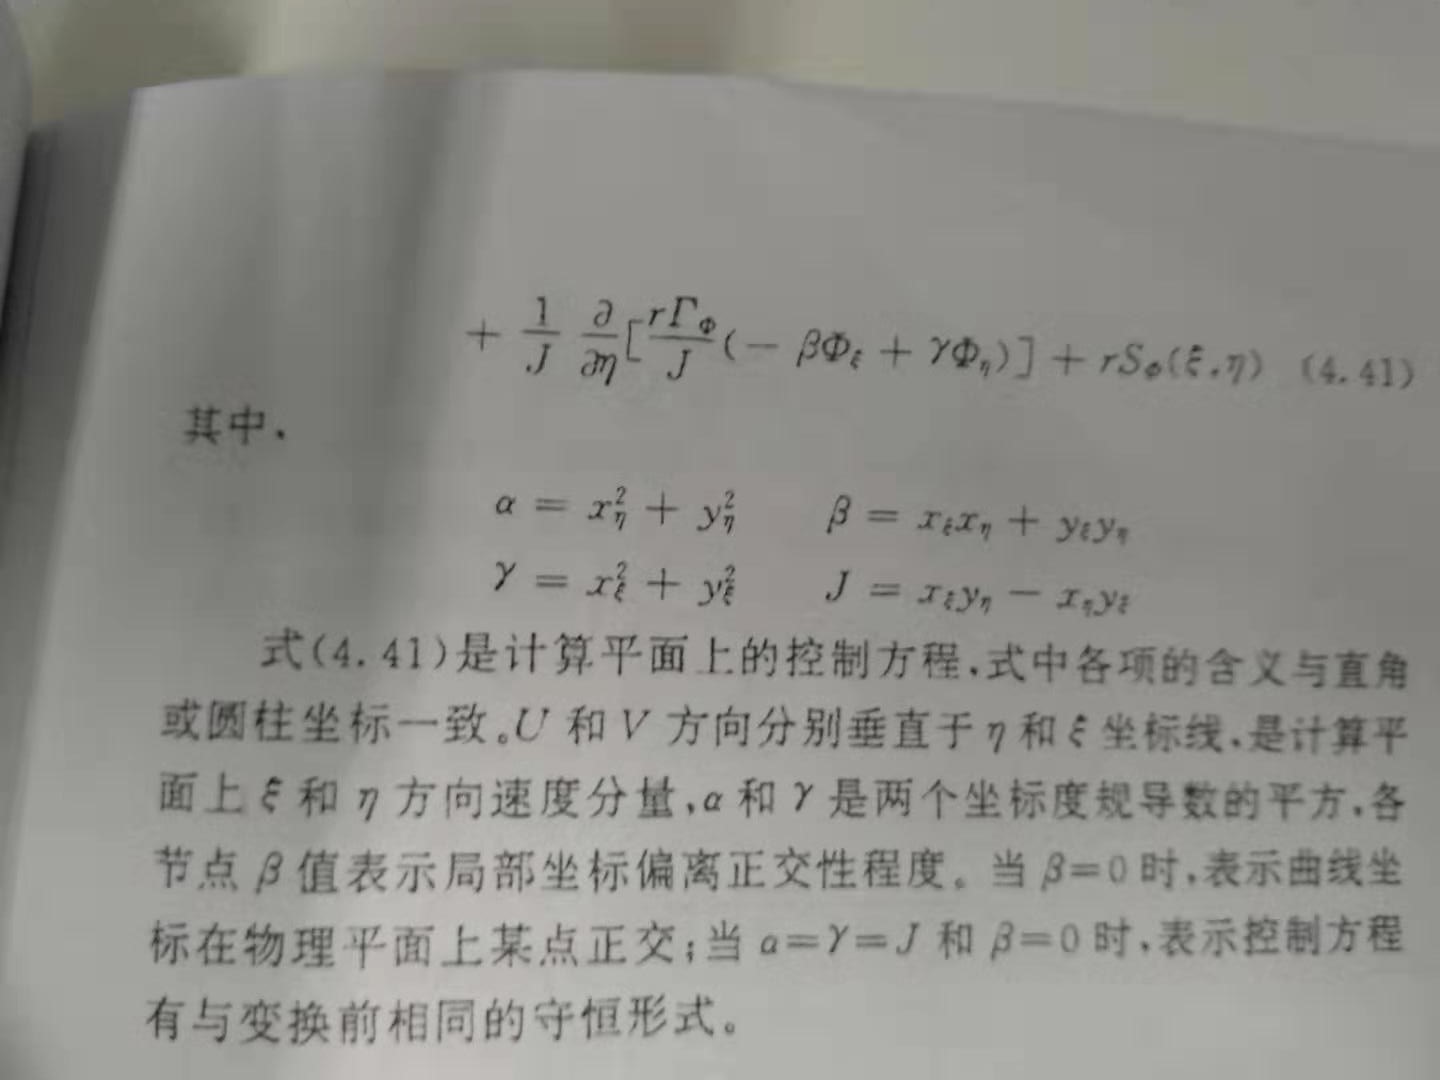 + 1/J ∂/∂η [rΓ_Φ/J (− βΦ_ξ + γΦ_η)] + rS_Φ(ξ,η) (4.41)
其中,
α = x_η² + y_η² β = x_ξx_η + y_ξy_η
γ = x_ξ² + y_ξ² J = x_ξy_η − x_ηy_ξ
式(4.41)是计算平面上的控制方程,式中各项的含义与直角
或圆柱坐标一致。U 和 V 方向分别垂直于 η 和 ξ 坐标线,是计算平
面上 ξ 和 η 方向速度分量,α 和 γ 是两个坐标度规导数的平方,各
节点 β 值表示局部坐标偏离正交性程度。当 β=0 时,表示曲线坐
标在物理平面上某点正交;当 α=γ=J 和 β=0 时,表示控制方程
有与变换前相同的守恒形式。